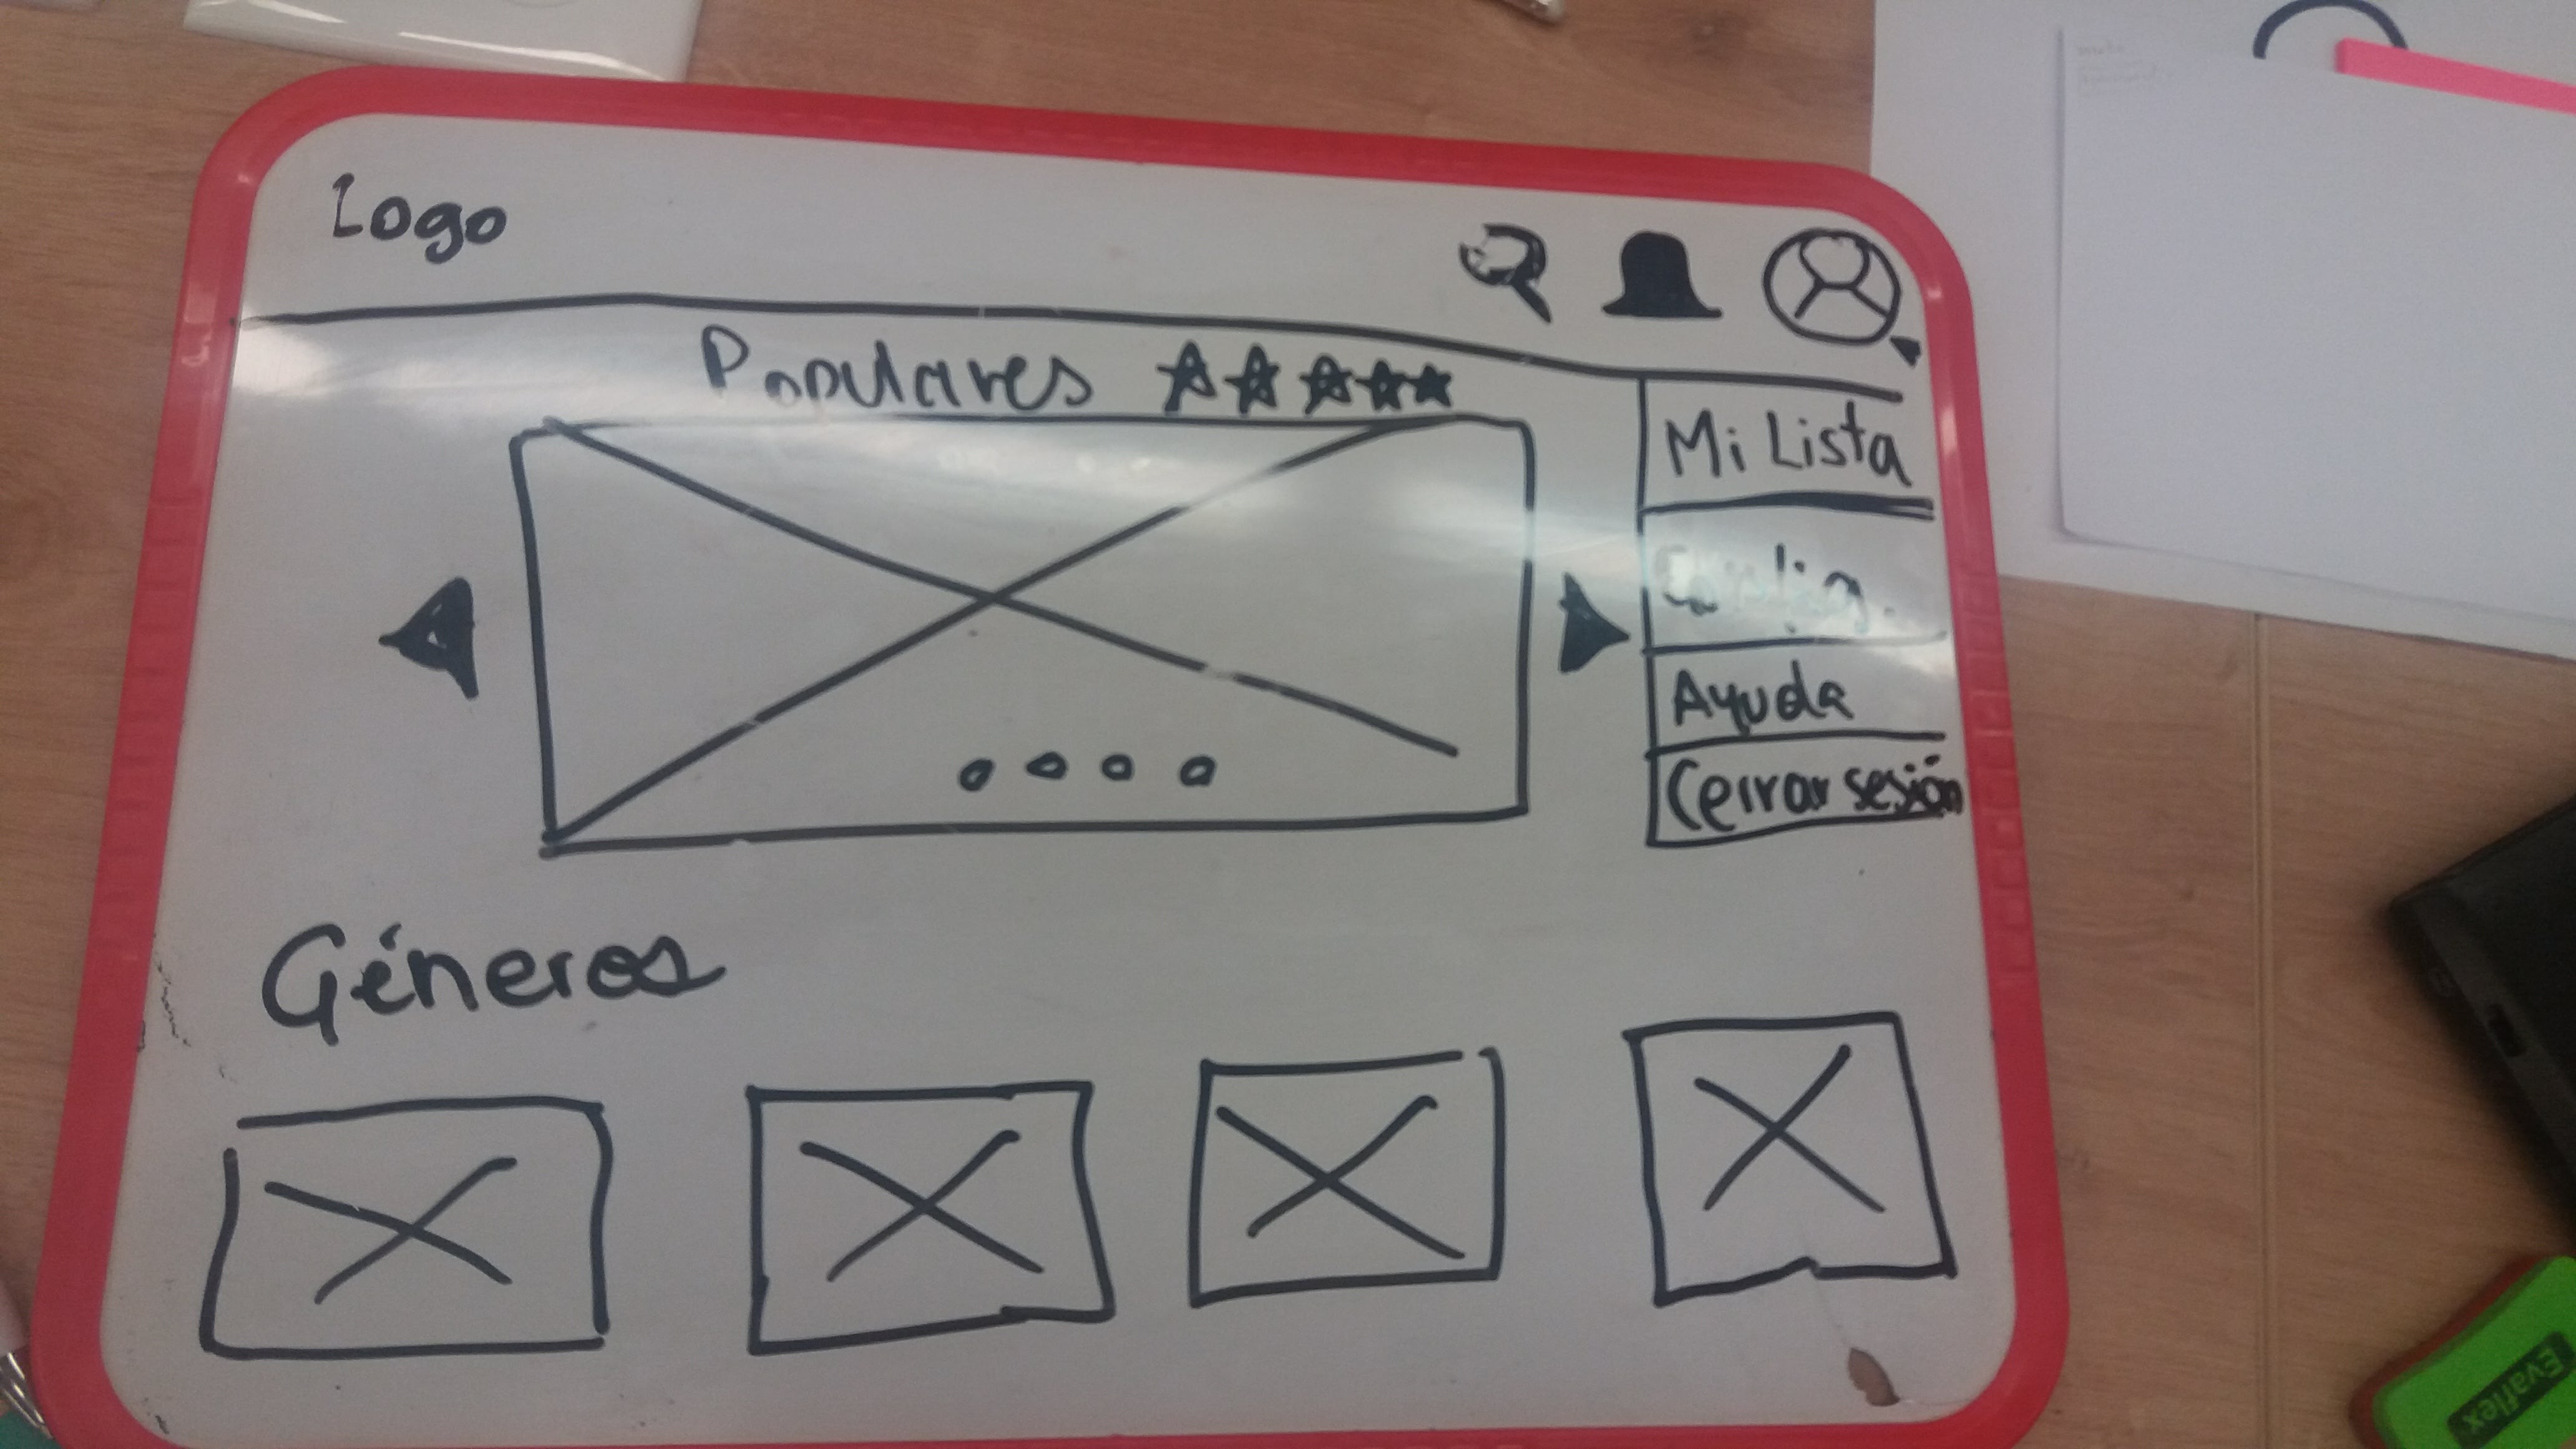 Logo
Populares
Mi Lista
Config.
Ayuda
Cerrar sesión
Géneros
Evaflex